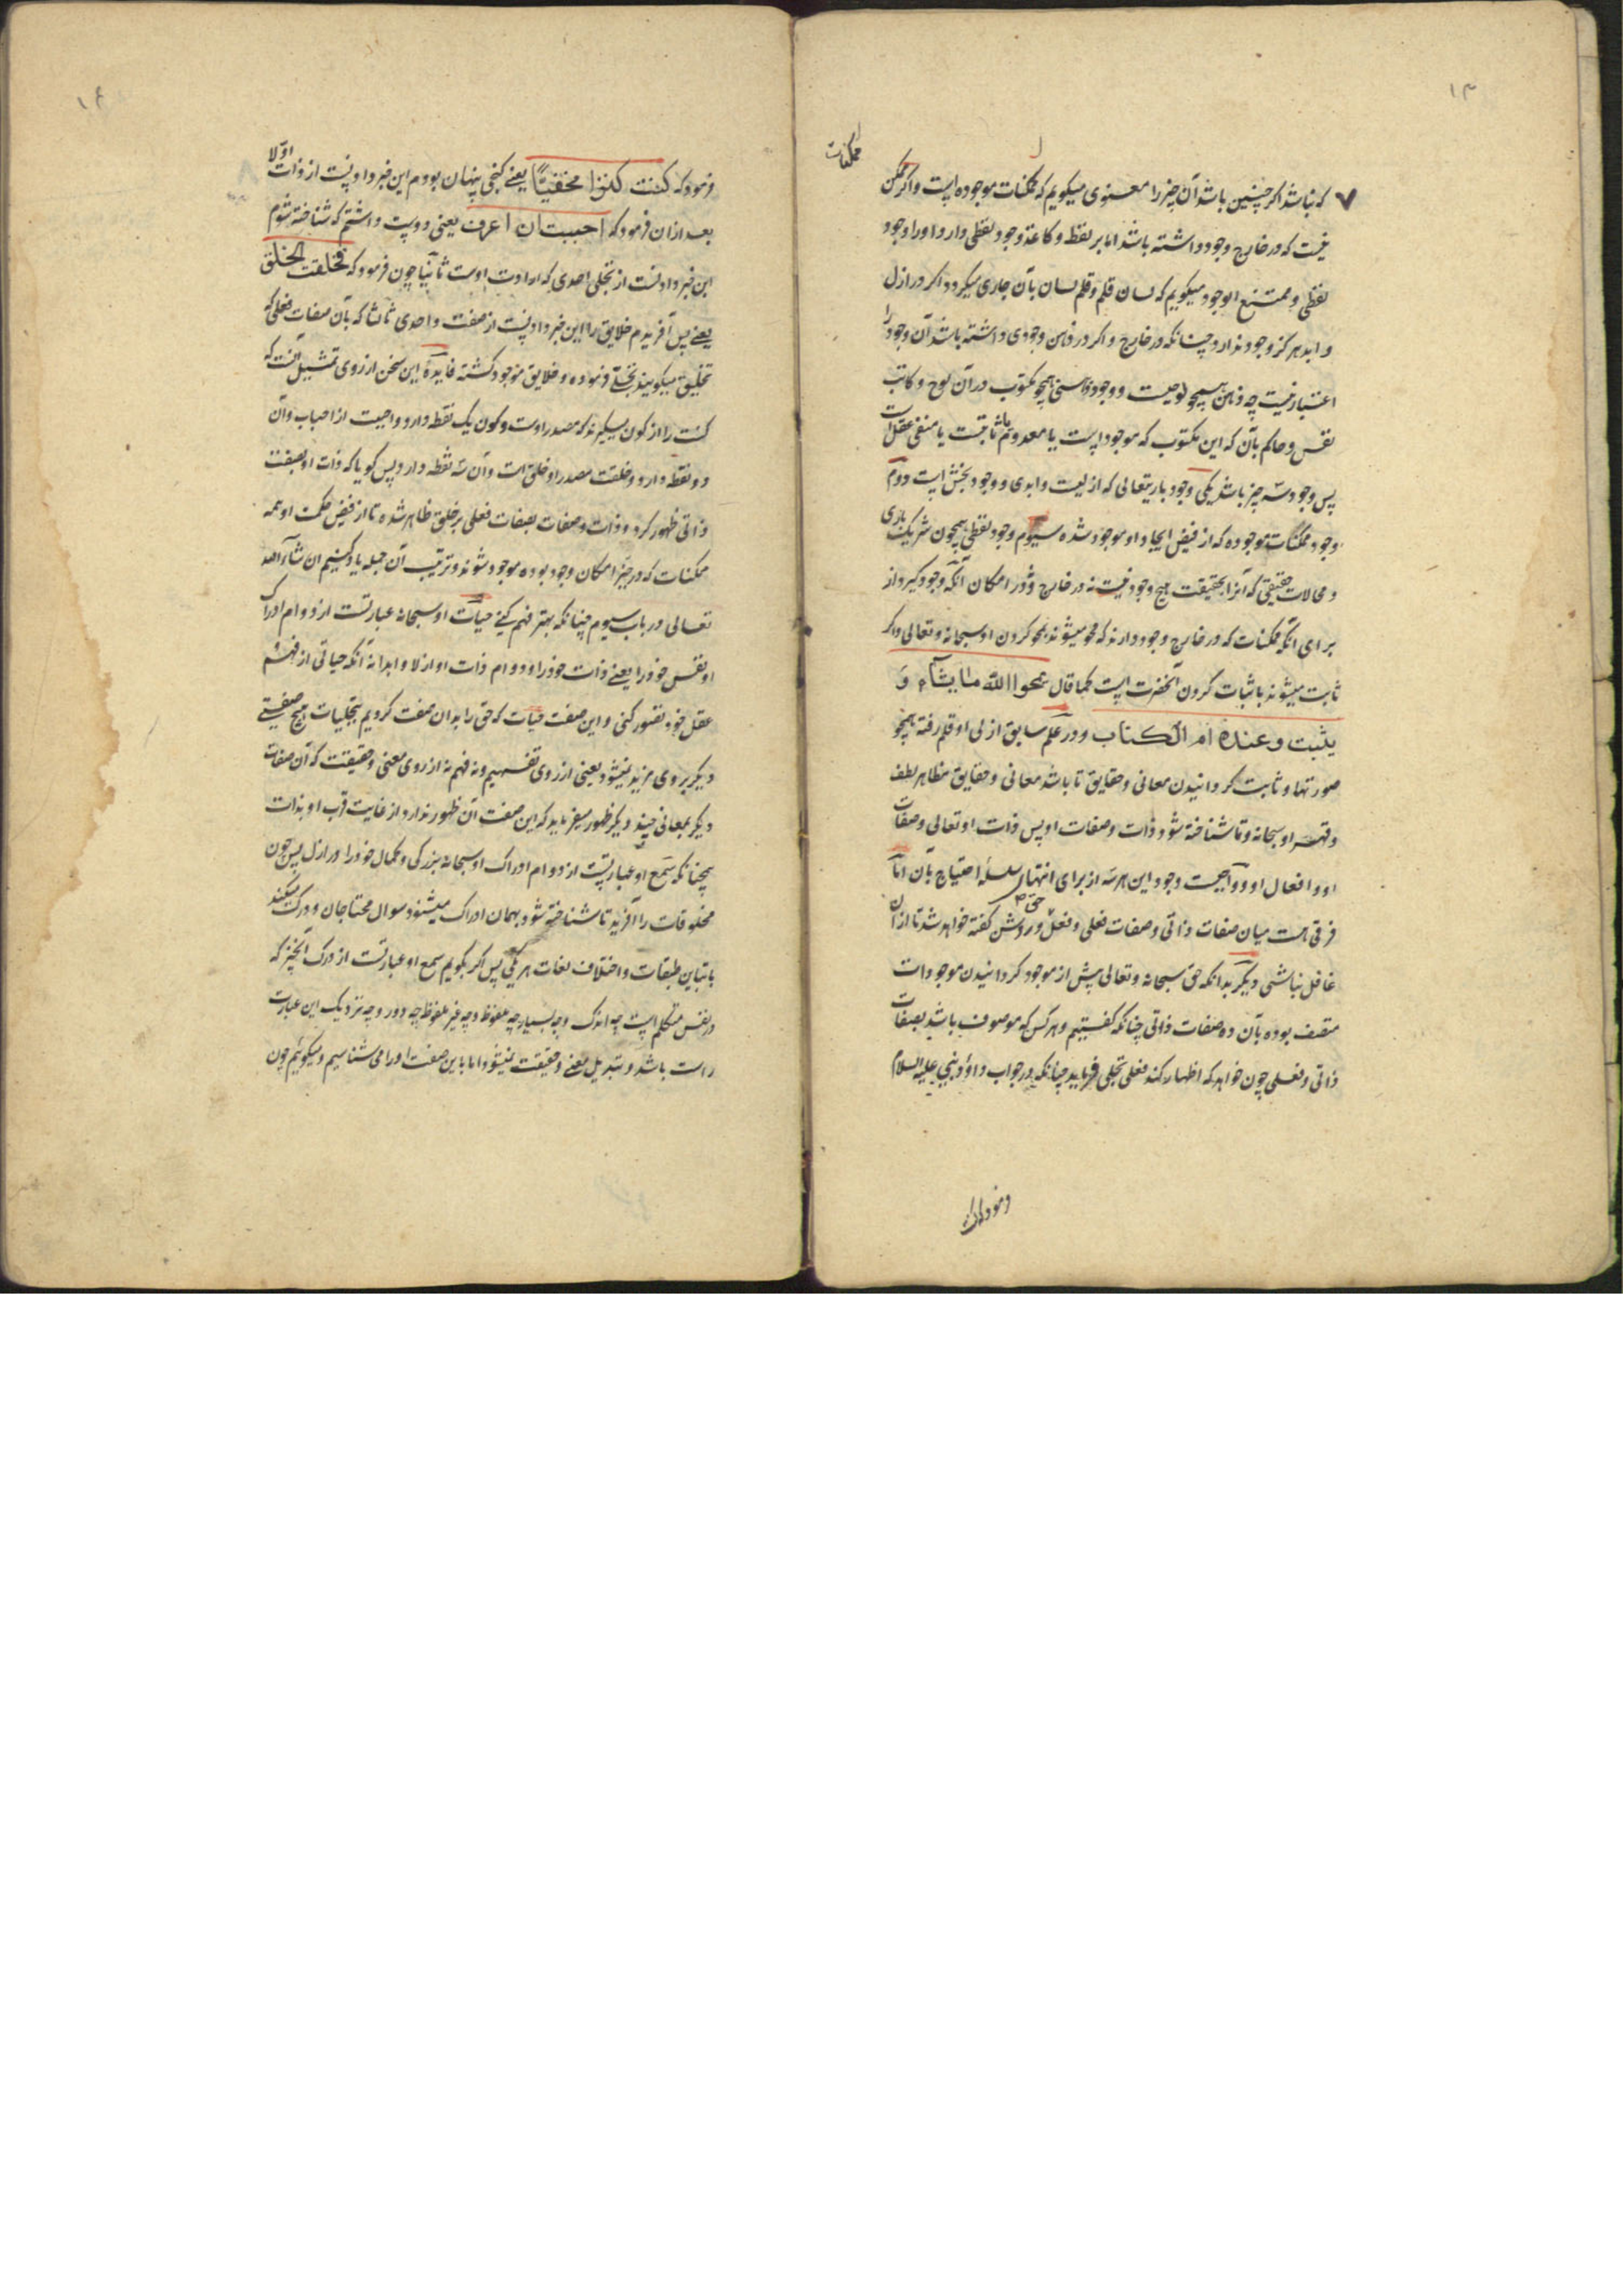 ۱۳
ممکنات
۷ که نباشد اگر چنین باشد آن چیز را معنوی میکویم که ممکنات موجوده است و اگر ممکن
نیست که در خارج وجود داشته باشد اما بر لفظ و کاغذ وجود لفظی دارد او را وجود
لفظی و ممتنع الوجود میکویم که لسان قلم و قلم لسان بآن جاری میکردد اکر در ازل
و ابد هرکز وجود ندارد چنانکه در خارج و اکر در ذهن وجودی داشته باشد آن وجود را
اعتبار نیست چه ذهن همچو لوحیست و وجود ذهنی همچو مکتوب در آن لوح و کاتب
نفس و حاکم بآن که این مکتوب که موجود است یا معدوم ثابتست یا منفی عقل است
پس وجود سه چیز باشد یکی وجود باریتعالی که ازلیت و ابدی و وجود بخش است دوم
وجود ممکنات موجوده که از فیض ایجاد او موجود شده سیوم وجود لفظی همچون شریک باری
و محالات حقیقی که آنرا بحقیقت هیچ وجود نیست نه در خارج و نه در امکان آنکه وجود کیرد از
برای آنکه ممکنات که در خارج وجود دارند که محو میشوند بمحو کردن او سبحانه و تعالی و اکر
ثابت میشوند باثبات کردن آنحضرت است کما قال یمحوا الله ما یشآء و
یثبت و عنده ام الکتاب و در علم سابق ازلی او قلم رفته بمحو
صورتها و ثابت کردانیدن معانی و حقایق تا باشد معانی و حقایق مظاهر لطف
و قهر او سبحانه و تا شناخته شود ذات و صفات او پس ذات او تعالی و صفات
او و افعال او و واجبست وجود این هر سه از برای انتهای سلسلهٔ احتیاج بآن اما
فرقی هست میان صفات ذاتی و صفات فعلی و فعل و روشن کفته خواهد شد تا از آن
غافل نباشی دیکر بدانکه حق سبحانه و تعالی پیش از موجود کردانیدن موجودات
متصف بوده بآن دو صفات ذاتی چنانکه کفتیم و هر کس که موصوف باشد بصفات
ذاتی و فعلی چون خواهد که اظهار کند فعلی تجلی فرماید چنانکه در جواب داؤد نبی علیه السلام
۱۴
فرمود که کنت کنزا مخفیّاً یعنی کنجی پنهان بودم این خبر دادنست از ذات اوّلا
بعد ازان فرمود که احببت ان اعرف یعنی دوست داشتم که شناخته شوم
این خبر دادنست از تجلی احدی که ارادت اوست ثانیا چون فرمود که فخلقت الخلق
یعنی پس آفریدم خلایق را این خبر دادنست از صفت واحدی ثالثا که بآن صفات فعلی که
تخلیق میکویند تجلی فرموده و خلایق موجود کشته فایده این سخن از روی تمثیل آنست که
کنت را از کون میکیرند که مصدر اوست و کون یک نقطه دارد و احببت از احباب و آن
دو نقطه دارد و خلقت مصدر او خلق است و آن سه نقطه دارد پس کویا که ذات او بصفت
ذاتی ظهور کرد و ذات و صفات بصفات فعلی بر خلق ظاهر شده تا از فیض حکمت او همه
ممکنات که در حیّز امکان وجود بوده موجود شوند و ترتیب آن جمله یاد کنیم ان شآء الله
تعالی در باب سیوم چنانکه بهتر فهم کنی حیات او سبحانه عبارتست از دوام ادراک
او نفس خود را یعنی ذات خود را و دوام ذات او ازلا و ابدا نه آنکه حیاتی از فهم
عقل خود تصور کنی و این صفت حیات که حق را بدان صفت کردیم بتجلیات هیچ صفتی
دیکر بر وی مزید نمیشود یعنی از روی تفهیم و نه فهم نه از روی معنی و حقیقت که آن صفات
دیکر بمعانی چند دیکر ظهور میفرماید که این صفت آن ظهور ندارد از غایت قرب او بذات
همچنانکه سمع او عبارتست از دوام ادراک او سبحانه بزرکی و کمال خود را در ازل پس چون
مخلوقات را آفرید تا شناخته شود بهمان ادراک میشنود سوال محتاجان و درک میکند
با تباین طبقات و اختلاف لغات هر یکی پس اکر بکویم سمع او عبارتست از درک آنچیز که
در نفس متکلم است چه اندک و چه بسیار چه ملفوظ و چه غیر ملفوظ چه دور و چه نزدیک این عبارت
راست باشد و تبدیل معنی و حقیقت نمیشود اما باین صفت او را می شناسیم و میکوئیم چون